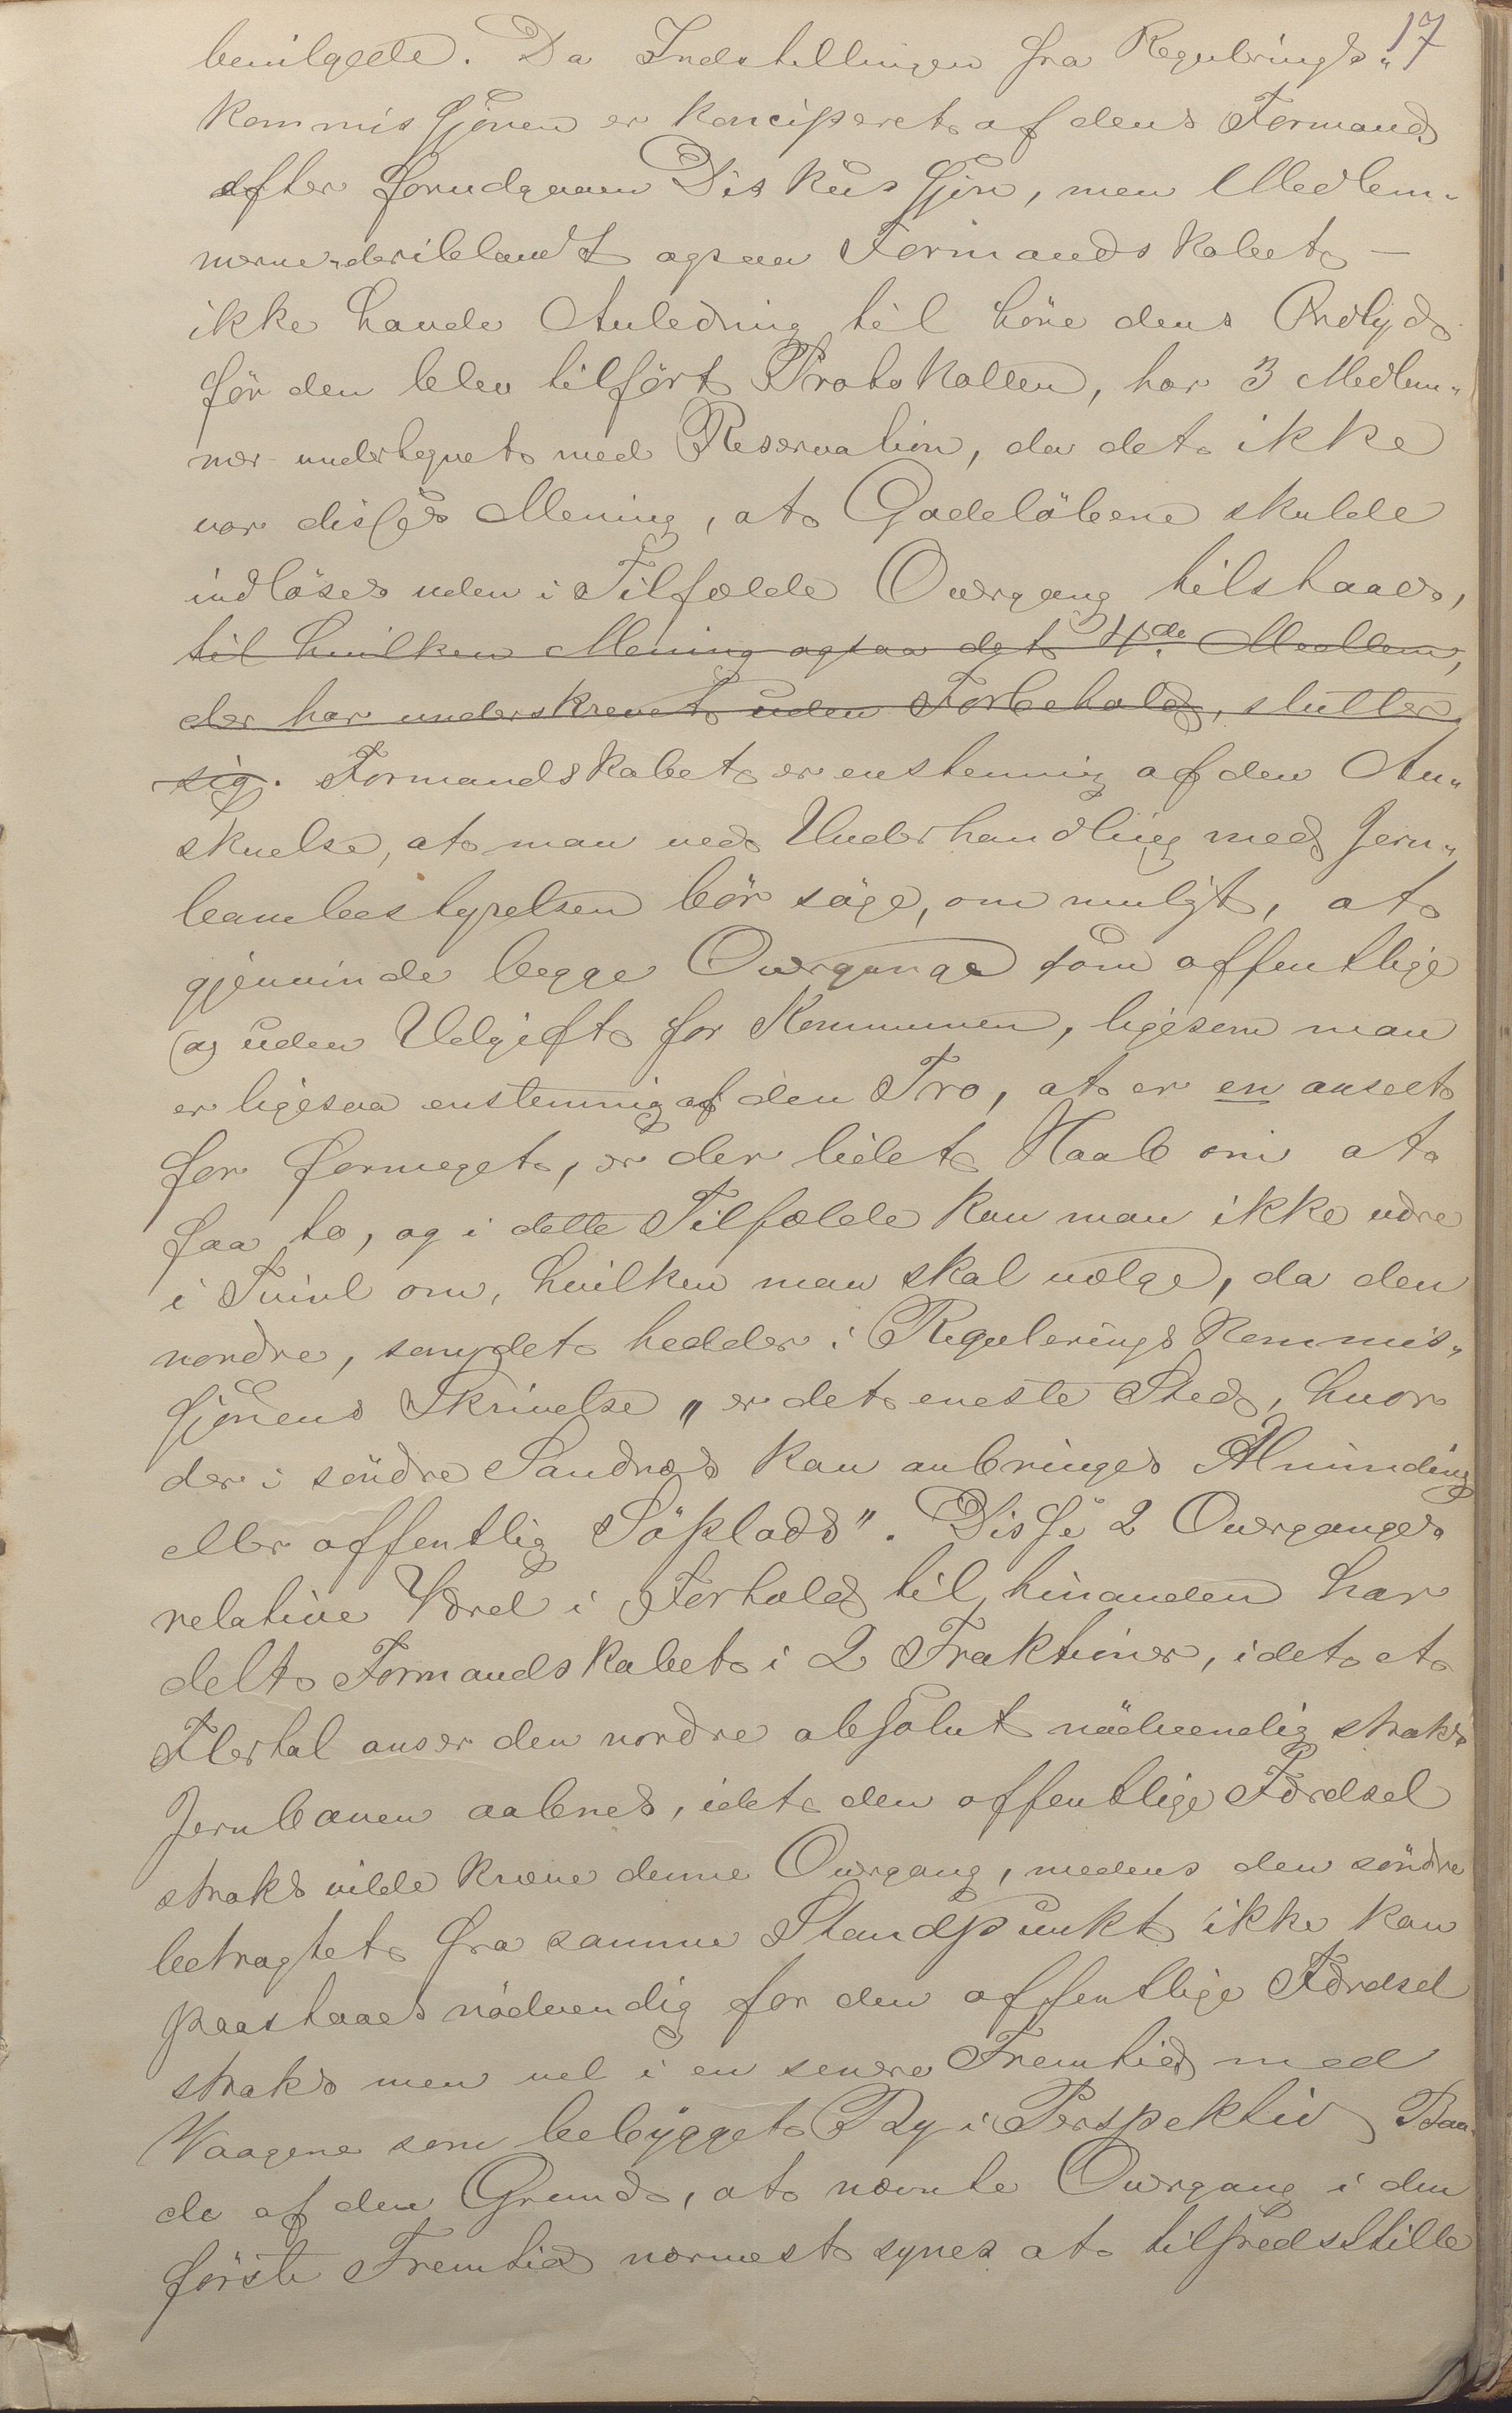 17
bevilgede. Da Indstillingen fra Regulerings„
kommissjonen er konciperet af dens Formand
efter forudgaaen Diskussjon, men Medlem„
merne deriblandt ogsaa Formandskabet —
ikke havde Anledning til höre dens Ordlyd
för den blev tilfört Protokollen, har 3 Medlem„
mer undertegnet med Reservation, da det ikke
var disses Mening, at Gadelöbene skulde
indlöses uden i Tilfælde Overgang tilstaaes,
til hvilken Mening ogsaa det 4de Medlem,
der har underskrevet uden Forbehold, slutter
sig. Formandskabet er enstemmig af den An„
skuelse, at man ved Underhandling med Jern„
banebestyrelsen bör söge, om muligt, at
gjenvinde begge Overgange som offentlige
og uden Udgift for Kommunen, ligesom man
er ligesaa enstemmig af den Tro, at er en anseet
for formeget, er der lidet Haab om at
faa to, og i dette Tilfælde kan man ikke være
i Tvivl om, hvilken man skal vælge, da den
nordre, som det hedder i Regulerings Kommis„
sjonens Skrivelse „er det eneste Sted, hvor
der i söndre Sandnæs kan anbringes Alminding
eller offentlig Söplads". Disse 2 Overganges
relative Værd i Forhold til hinanden har
delt Formandskabet i 2 Fraktioner, idet et
Flertal anser den nordre absolut nödvendig straks
Jernbanen aabnes, idet den offentlige Færdsel
straks vilde kræve denne Overgang, medens den söndre
betragtet fra samme Standpunkt ikke kan
paastaaes nödvendig for den offentlige Færdsel
straks men vel i en senere Fremtid med
Vaagene som bebygget By i Perspektiv Baa„
de af den Grund, at nævnte Overgang i den
förste Fremtid nærmest synes at tilfredsstille